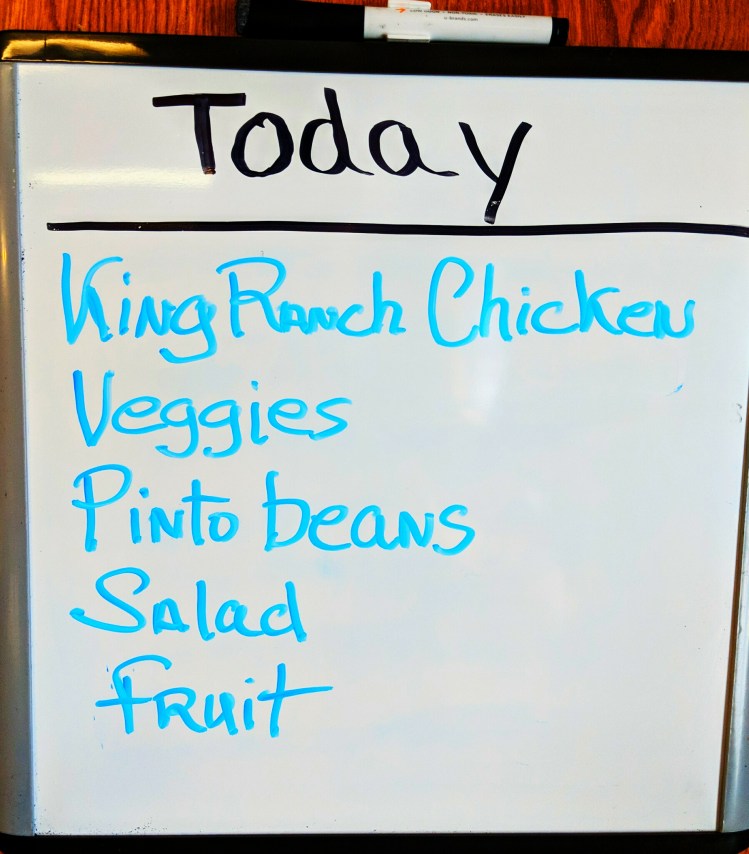 Today
King Ranch Chicken
Veggies
Pinto beans
Salad
Fruit